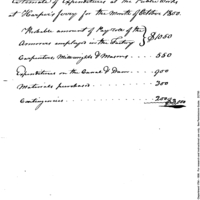 Estimate of Expenditures at the Public Works
at Harper's ferry for the Month of October 1800.
Probable amount of Pay Roll of the
Armourers employed in the Factory } $1050
Carpenters, Millwrights & Masons - - 550
Expenditures on the Canal & Dam - - 900
Materials purchased - - 300
Contingencies - - 300